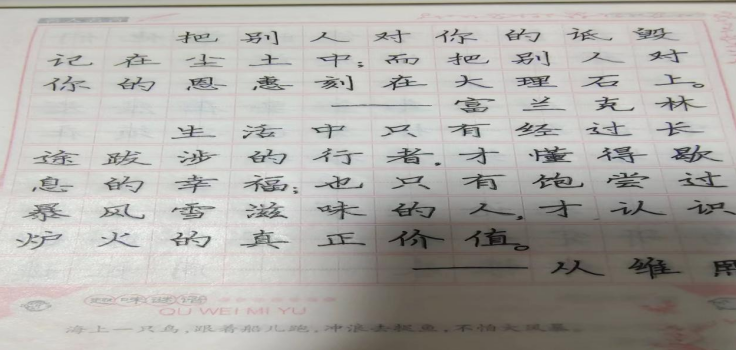 把别人对你的诋毁
记在尘土中;而把别人对
你的恩惠刻在大理石上。
——富兰克林
生活中只有经过长
途跋涉的行者,才懂得歇
息的幸福;也只有饱尝过
暴风雪滋味的人,才认识
炉火的真正价值。
——从维
趣味谜语
QU WEI MI YU
海上一只鸟,跟着船儿跑,冲浪去捉鱼,不怕大风暴。